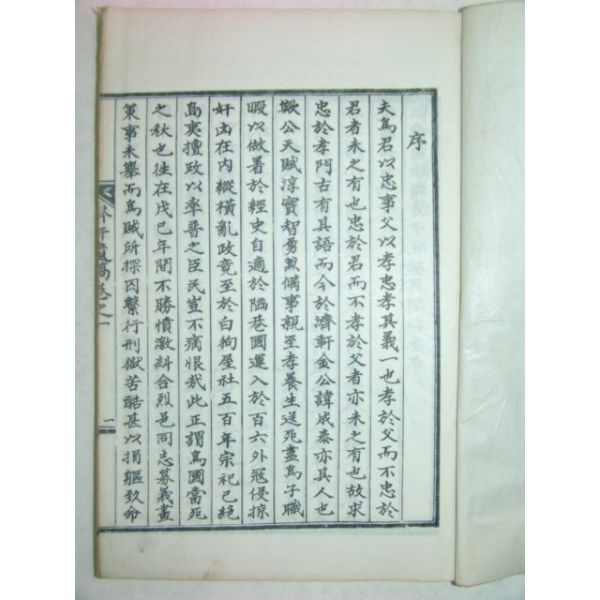 序
夫爲君以忠事父以孝忠孝其義一也孝於父而不忠於
君者未之有也忠於君而不孝於父者亦未之有也故求
忠於孝門古有其語而今於濟軒金公諱成泰亦其人也
歟公天賦淳實智勇兼備事親至孝養生送死盡爲子職
暇以做暑於經史自適於陋巷國運入於百六外寇侵掠
奸凶在內縱橫亂政竟至於白拘屋社五百年宗祀已絶
島夷擅政以率普之臣民豈不痛恨哉此正謂爲國當死
之秋也往在戊巳年間不勝憤激糾合烈邑同志募義畫
策事未擧而爲賊所探囚繫行刑獄苦酷甚以捐軀致命
卷之一
一